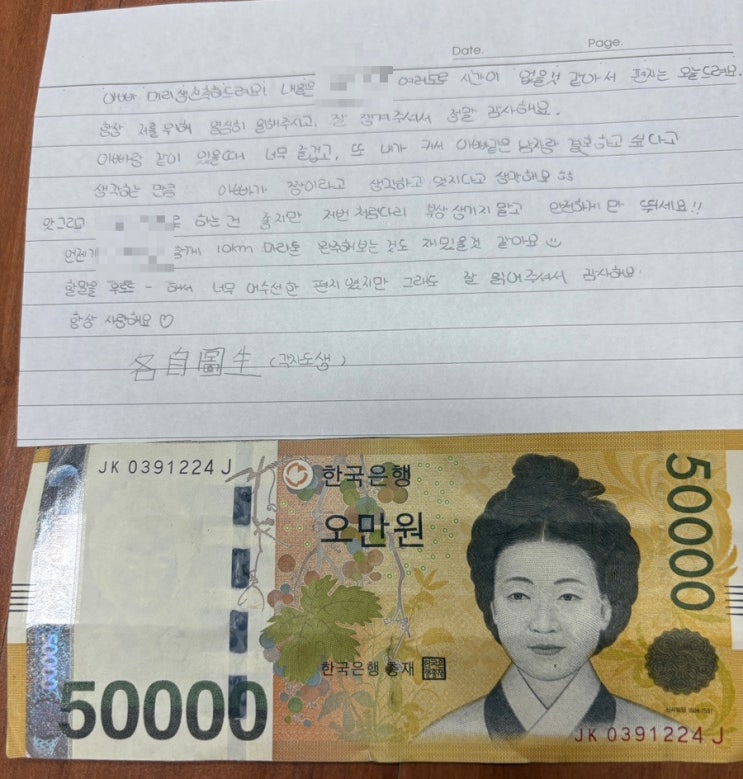 Date. Page.
아빠 미리 생신축하드려요! 내일은 여러모로 시간이 없을것 같아서 편지는 오늘드려요.
항상 저를 위해 주시고, 잘 챙겨주셔서 정말 감사해요.
아빠랑 같이 있을때 너무 즐겁고, 또 내가 커서 아빠같은 남자랑 결혼하고 싶다고
생각하는 만큼 아빠가 짱이라고 생각하고 멋지다고 생각해요
앗 그리고 하는 건 좋지만 저번처럼 다리 부상 생기지 말고 안전하게만 뛰세요!!
언젠가 10km 마라톤 완주해보는 것도 재밌을것 같아요
할말을 해서 너무 어수선한 편지였지만 그래도 잘 읽어주셔서 감사해요.
항상 사랑해요 ♡
各自圖生 (각자도생)
JK 0391224 J
한국은행
오만원
50000
한국은행 총재
50000
50000
JK 0391224 J